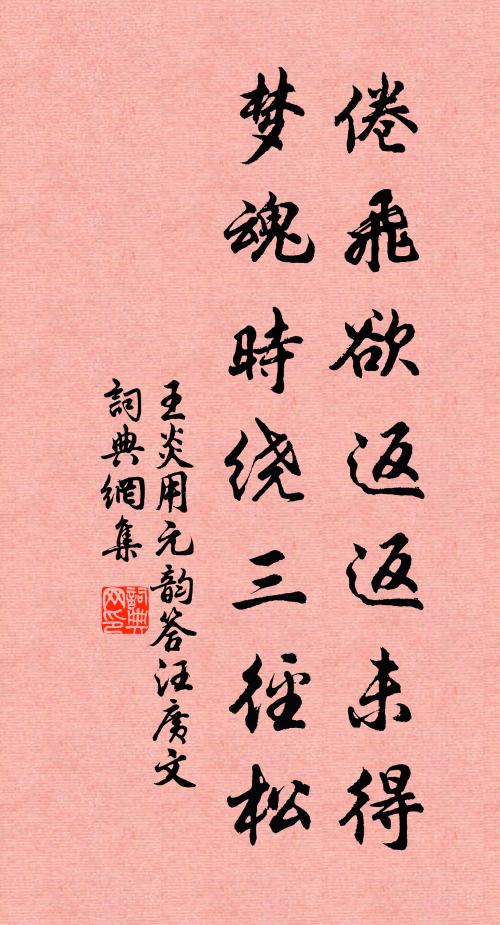 倦飛欲返返未得
梦魂時绕三徑松
王炎用元韵答汪廣文
詞典網集
詞典网印